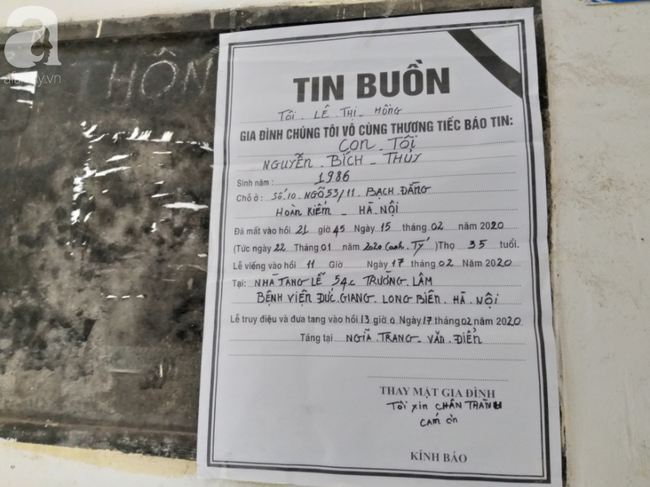 a
THÔN
TIN BUỒN
Tôi LÊ THỊ HỒNG
GIA ĐÌNH CHÚNG TÔI VÔ CÙNG THƯƠNG TIẾC BÁO TIN:
CON TÔI
NGUYỄN BÍCH THỦY
Sinh năm: 1986
Chỗ ở: SỐ 10 NGÕ 53/11 BẠCH ĐẰNG
HOÀN KIẾM - HÀ NỘI
Đã mất vào hồi 21 giờ 45 Ngày 15 tháng 02 năm 2020
(Tức ngày 22 Tháng 01 năm 2020 (Canh Tý) Thọ 35 tuổi.
Lễ viếng vào hồi 11 Giờ Ngày 17 tháng 02 Năm 2020
Tại: NHÀ TANG LỄ 54c TRƯỜNG LÂM
BỆNH VIỆN ĐỨC GIANG LONG BIÊN HÀ NỘI
Lễ truy điệu và đưa tang vào hồi 13 giờ 0 Ngày 17 tháng 02 năm 2020
Táng tại NGHĨA TRANG VĂN ĐIỂN
THAY MẶT GIA ĐÌNH
Tôi xin CHÂN THÀNH
CẢM ƠN
KÍNH BÁO